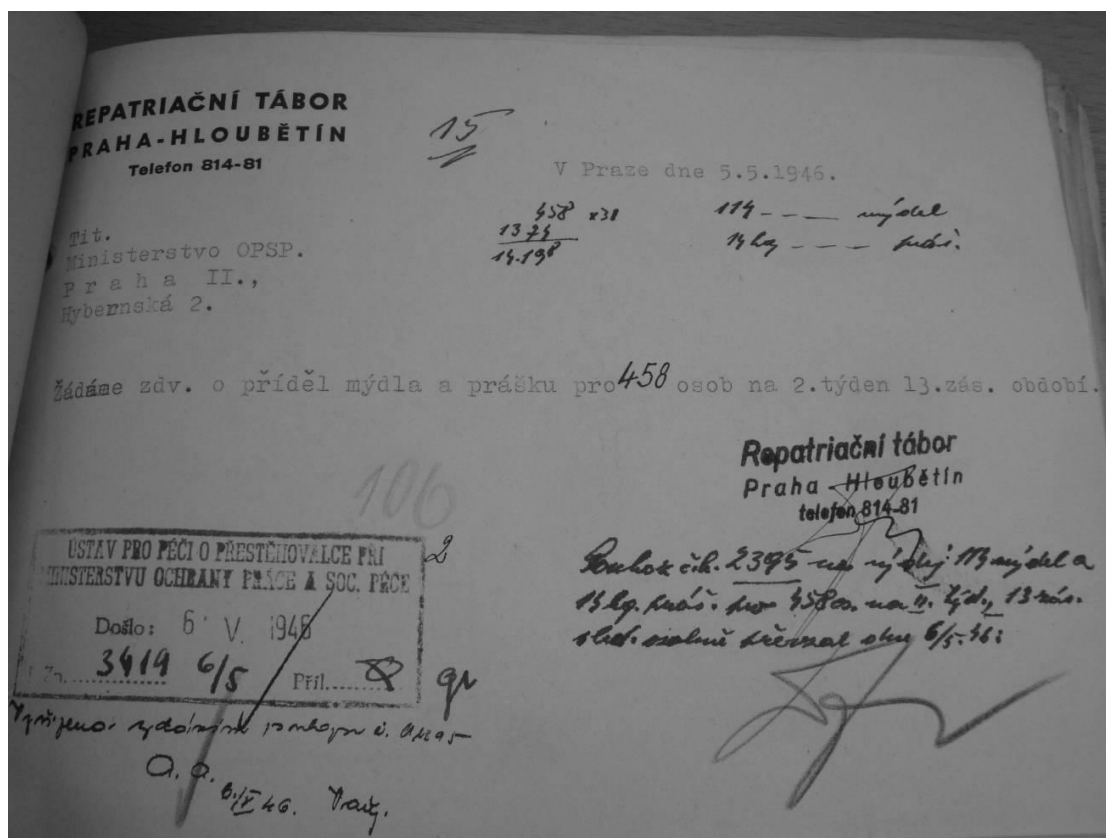 REPATRIAČNÍ TÁBOR
PRAHA-HLOUBĚTÍN
Telefon 814-81
15
V Praze dne 5.5.1946.
458 x31
1374
14.198
114 - - — mýdel
14 kg - - — práš.
Tit.
Ministerstvo OPSP.
Praha II.,
Hybernská 2.
Žádáme zdv. o příděl mýdla a prášku pro 458 osob na 2.týden 13.zás. období.
106
Repatriační tábor
Praha - Hloubětín
telefon 814-81
ÚSTAV PRO PÉČI O PŘESTĚHOVALCE PŘI
MINISTERSTVU OCHRANY PRÁCE A SOC. PÉČE
Došlo: 6 V. 1946
3419 6/5 Příl.
2
Poukaz č.k. 2395 na výdej mýdel a
14 kg. práš. pro 458 os. na II. týd., 13 zás.
převzal dne 6/5.46.
Vyřízeno. vydáním poukazu č.
a. a.
6./V 46.